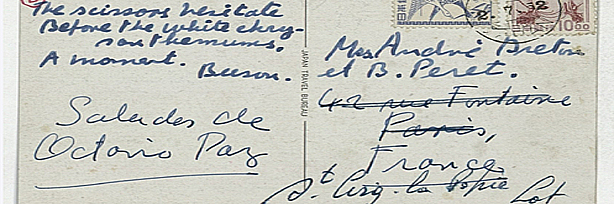 The scissors hesitate
Before the white chry-
santhemums.
A moment.
Buson.
Salades de
Octavio Paz
JAPAN TRAVEL BUREAU
32
10.00
Mrs André Breton
et B. Peret.
42 rue Fontaine
Paris,
France
St Cirq-la Popie Lot